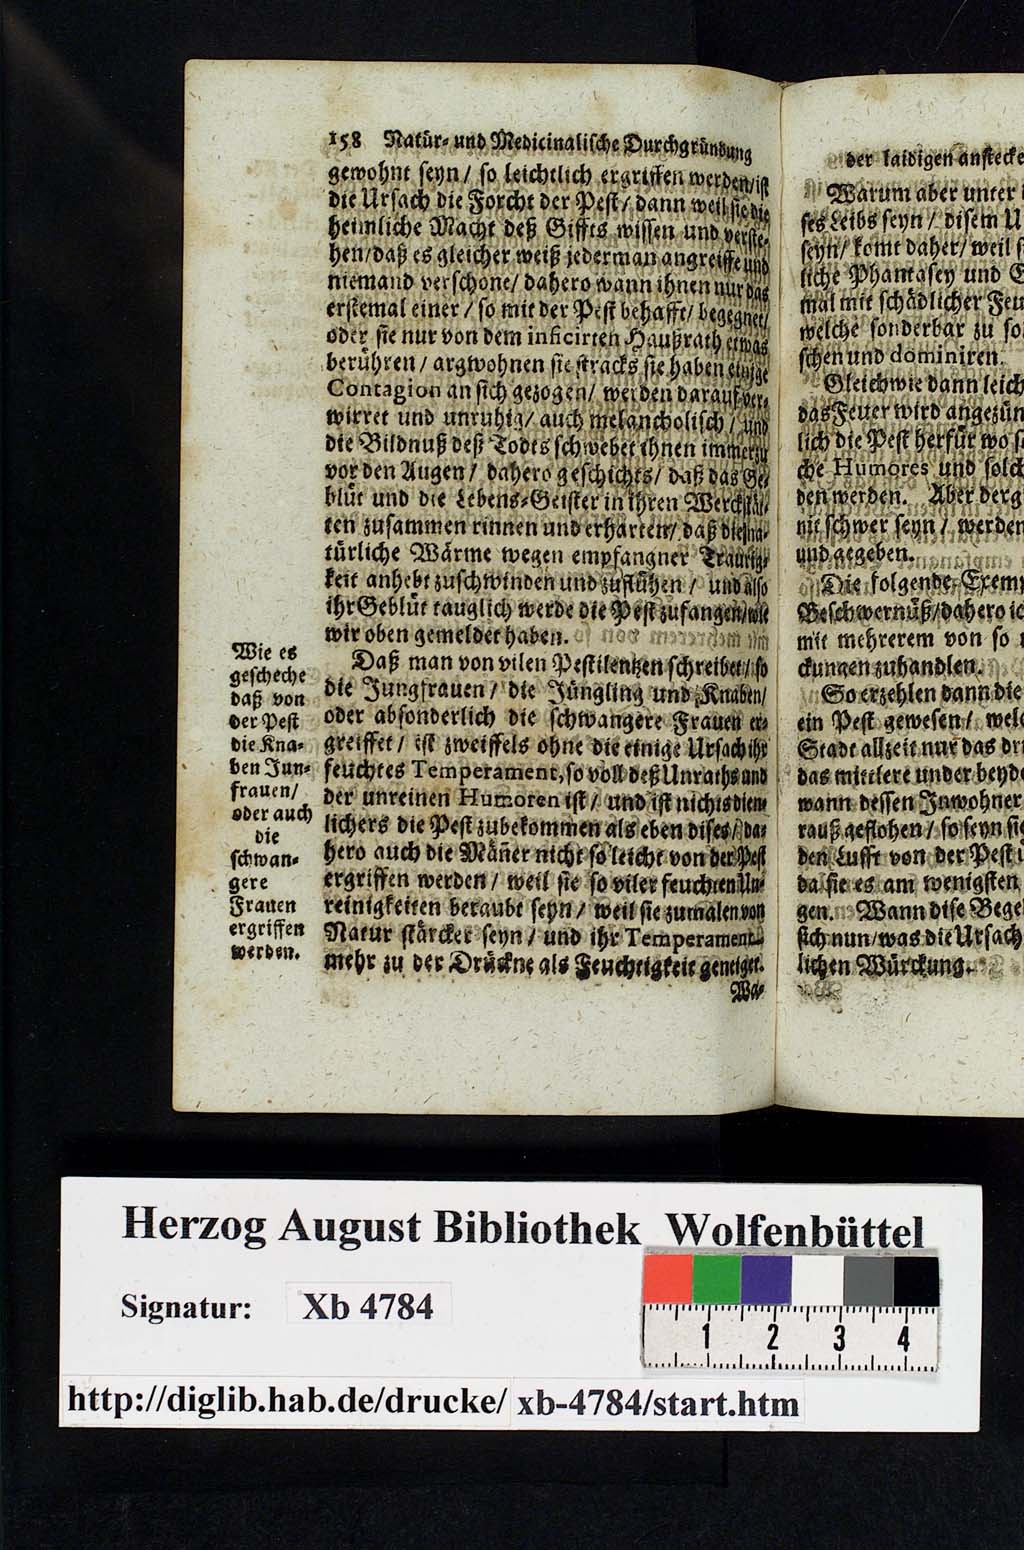 158 Natür- und Medicinalische Durchgründung
gewohnt seyn/ so leichtlich ergriffen werden/ ist
die Ursach die Forcht der Pest/ dann weil sie die
heimliche Macht deß Giffts wissen und verste-
hen/ daß es gleicher weiß jederman angreiffe und
niemand verschone/ dahero wann ihnen nur das
erstemal einer/ so mit der Pest behafft/ begegnet/
oder sie nur von dem inficirten Haußrath etwas
berühren/ argwohnen sie stracks sie haben einige
Contagion an sich gezogen/ werden darauf ver-
wirret und unruhig/ auch melancholisch/ und
die Bildnuß deß Todts schwebet ihnen immerzu
vor den Augen/ dahero geschichts/ daß das Ge-
blüt und die Lebens-Geister in ihren Werckstät-
ten zusammen rinnen und erharten/ daß die na-
türliche Wärme wegen empfangner Traurig-
keit anhebt zuschwinden und zuflühen/ und also
ihr Geblüt tauglich werde die Pest zufangen/ wie
wir oben gemeldet haben.
Wie es
gescheche
daß von
der Pest
die Kna-
ben Jun-
frauen/
oder auch
die
schwan-
gere
Frauen
ergriffen
werden.
Daß man von vilen Pestilentzen schreibet/ so
die Jungfrauen/ die Jüngling und Knaben/
oder absonderlich die schwangere Frauen er-
greiffet/ ist zweiffels ohne die einige Ursach ihr
feuchtes Temperament, so voll deß Unraths und
der unreinen Humoren ist/ und ist nichts dien-
lichers die Pest zubekommen als eben dises/ da-
hero auch die Mäñer nicht so leicht von der Pest
ergriffen werden/ weil sie so viler feuchten Un-
reinigkeiten beraubt seyn/ weil sie zumalen von
Natur stärcker seyn/ und ihr Temperament
mehr zu der Drückne als Feuchtigkeit geneiget.
Wa-
der laidigen anstecke
Warum aber unter
ses Leibs seyn/ disem U
seyn/ komt daher/ weil s
liche Phantasey und E
mal mit schädlicher Feu
welche sonderbar zu so
schen und dominiren.
Gleichwie dann leich
das Feuer wird angezün
lich die Pest herfür wo s
che Humores und solch
den werden. Aber derg
nit schwer seyn/ werden
und gegeben.
Die folgende Exemp
Beschwernüß/ dahero ic
mit mehrerem von so
ckungen zuhandlen.
So erzehlen dann die
ein Pest gewesen/ welc
Stadt allzeit nur das dri
das mittlere under beyde
wann dessen Inwohner
rauß geflohen/ so seyn sie
den Lufft von der Pest
da sie es am wenigsten
gen. Wann dise Begeb
sich nun/ was die Ursach
lichen Würckung.
Herzog August Bibliothek Wolfenbüttel
Signatur: Xb 4784
1 2 3 4
http://diglib.hab.de/drucke/ xb-4784/start.htm